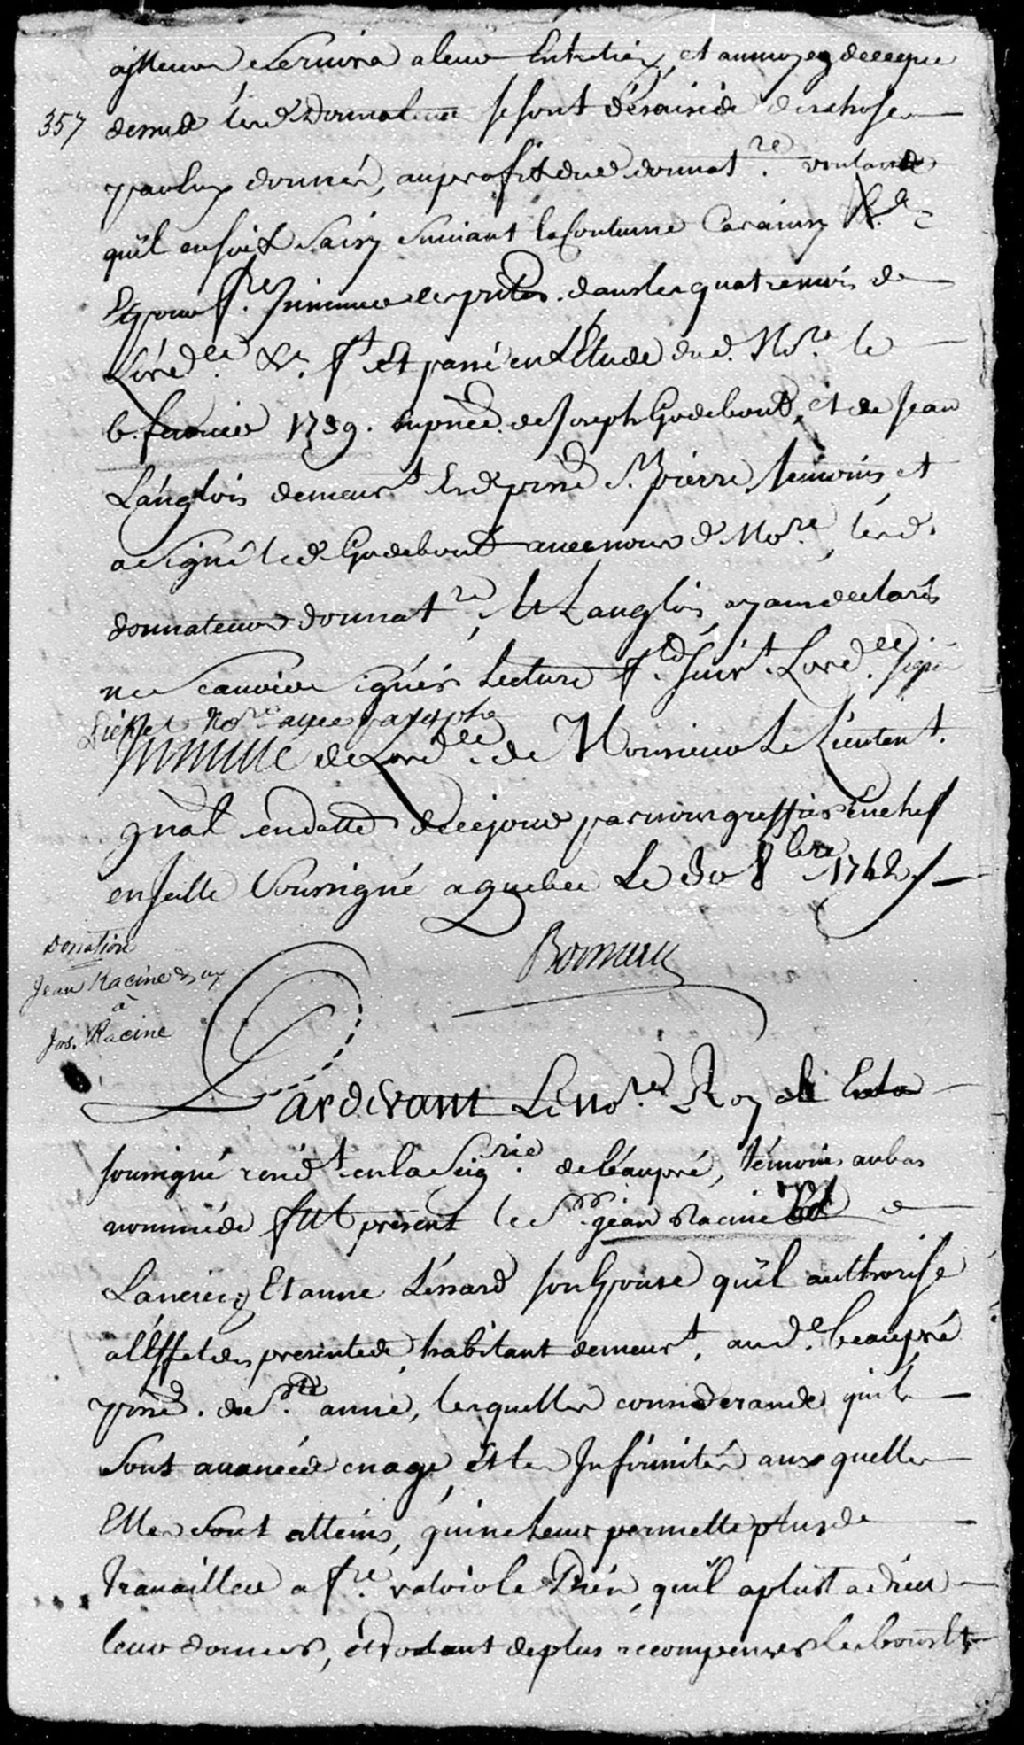 357
et au moyen de ce que
dessus les d. Donnateurs se sont désaisis des choses
par Eux donnés, au profit du d. donnat.re voulants
qu'il en soit Saisy Suivant la Coutume
Et pour f.re Jnsinuer les p.ntes dans les quatre mois de
L'ord.ce &c. f.t Et passé en L'Etude du d. No.re le
6 fevrier 1739. En p.nce de Joseph Godebout, et de Jean
Langlois demeur.t En la d. parr.e S.t pierre temoins, et
a Signé le d. Godebout avec nous d. No.re, les d.
donnateurs donnat.re, et Langlois ayans declarés
ne Scavoir Signér Lecture f.te Suiv.t L'ord.ce signé
No.re avec paraphe
Jnsinué de L'ord.ce de Monsieur Le Lieuten.t
gnãl en datte de ce jour par nous greffier En chef
en jcelle Soussigné a quebec Le 30 8bre 1742 /
Boisseau
Donation
Jean Racine & ux
à
Jos. Racine
Pardevant Le No.re Royal En la
soussigné resid.t en la Seig.rie de beaupré, témoins au bas
nommés fut présent le S.r jean Racine de
L'ancien Et anne L'éssard son Epouse qu'il authorise
a L'Effet des presentes, habitant demeur.t au d. beaupré
parr.e de S.te anne, lesquelles considerants qu'ils
Sont avancés en age, Et les Jnfirmités aux quelles
Elles Sont atteins, qui ne leur permette plus de
travailler a f.re valoir le Bién qu'il a plust a dieu
leur donner, et voulant de plus recompenser les bons &